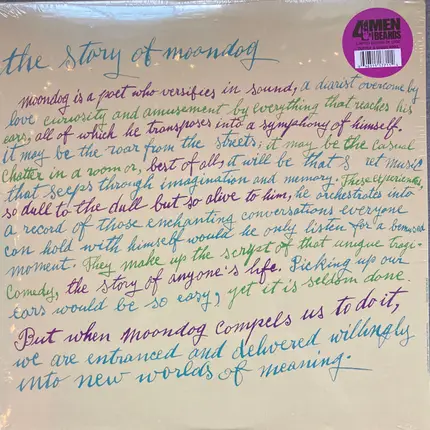 4 MEN
WITH
BEARDS
the story of moondog
moondog is a poet who versifies in sound, a diarist overcome by
love curiosity and amusement by everything that reaches his
ears, all of which he transposes into a symphony of himself.
it may be the roar from the streets; it may be the casual
chatter in a room or, best of all, it will be that s ret music
that seeps through imagination and memory. These experiences,
so dull to the dull but so alive to him, he orchestrates into
a record of those enchanting conversations everyone
can hold with himself would he only listen for a bemused
moment. They make up the script of that unique tragi-
comedy, the story of anyone's life. Picking up our
ears would be so easy, yet it is seldom done.
But when Moondog compels us to do it,
we are entranced and delivered willingly
into new worlds of meaning.